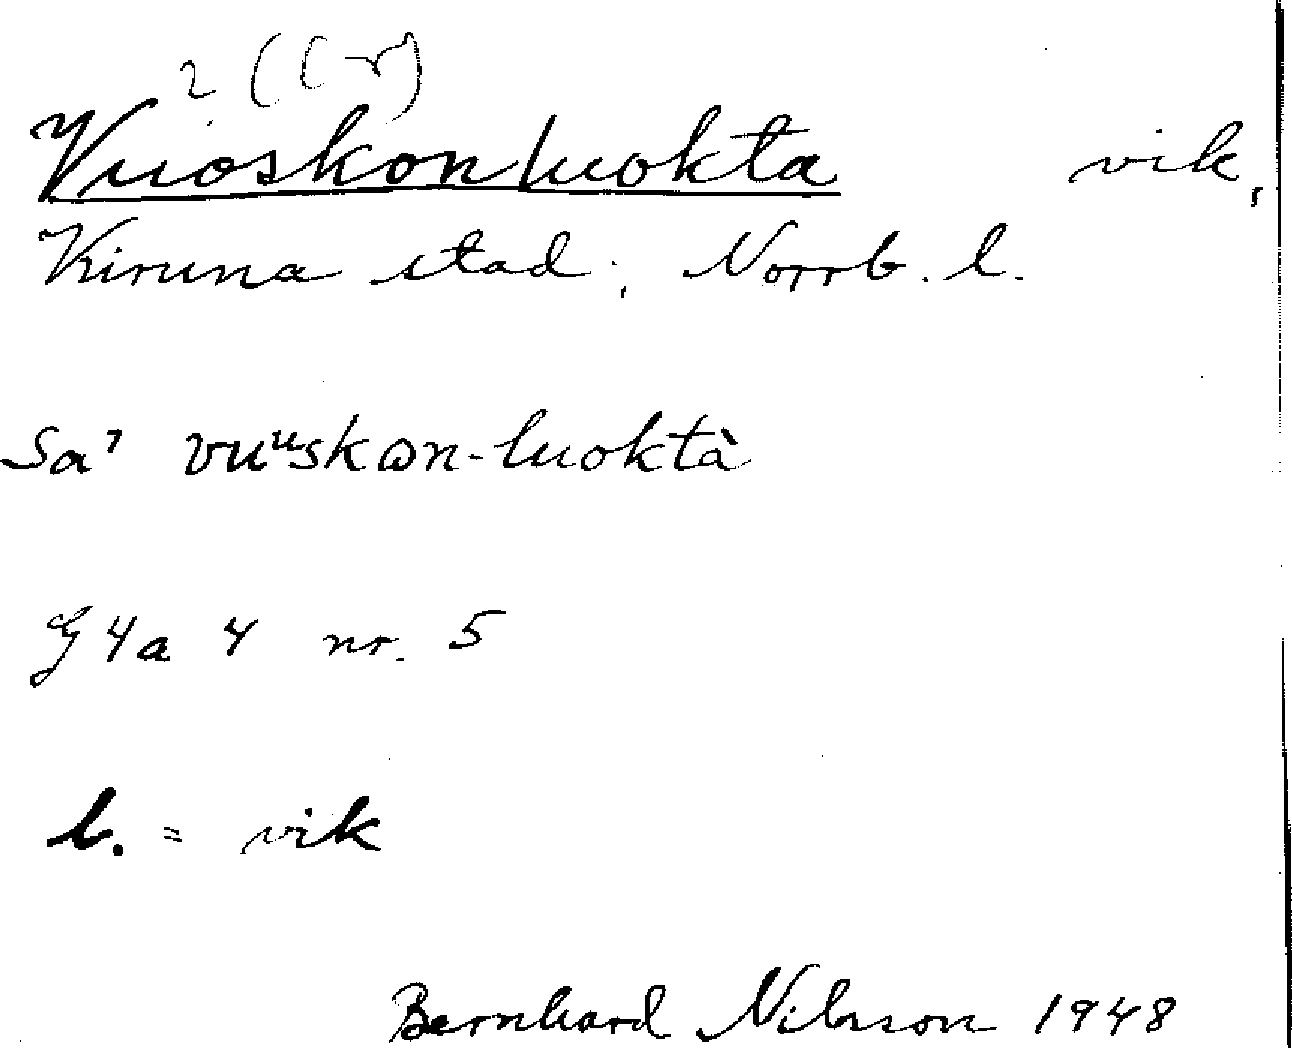 Vuoskonluokta vik,
Kiruna stad, Norrb. l.
Sa' vuᵘskωn-luoktà
G 4a 4 nr. 5
l. = vik
Bernhard Nilsson 1948